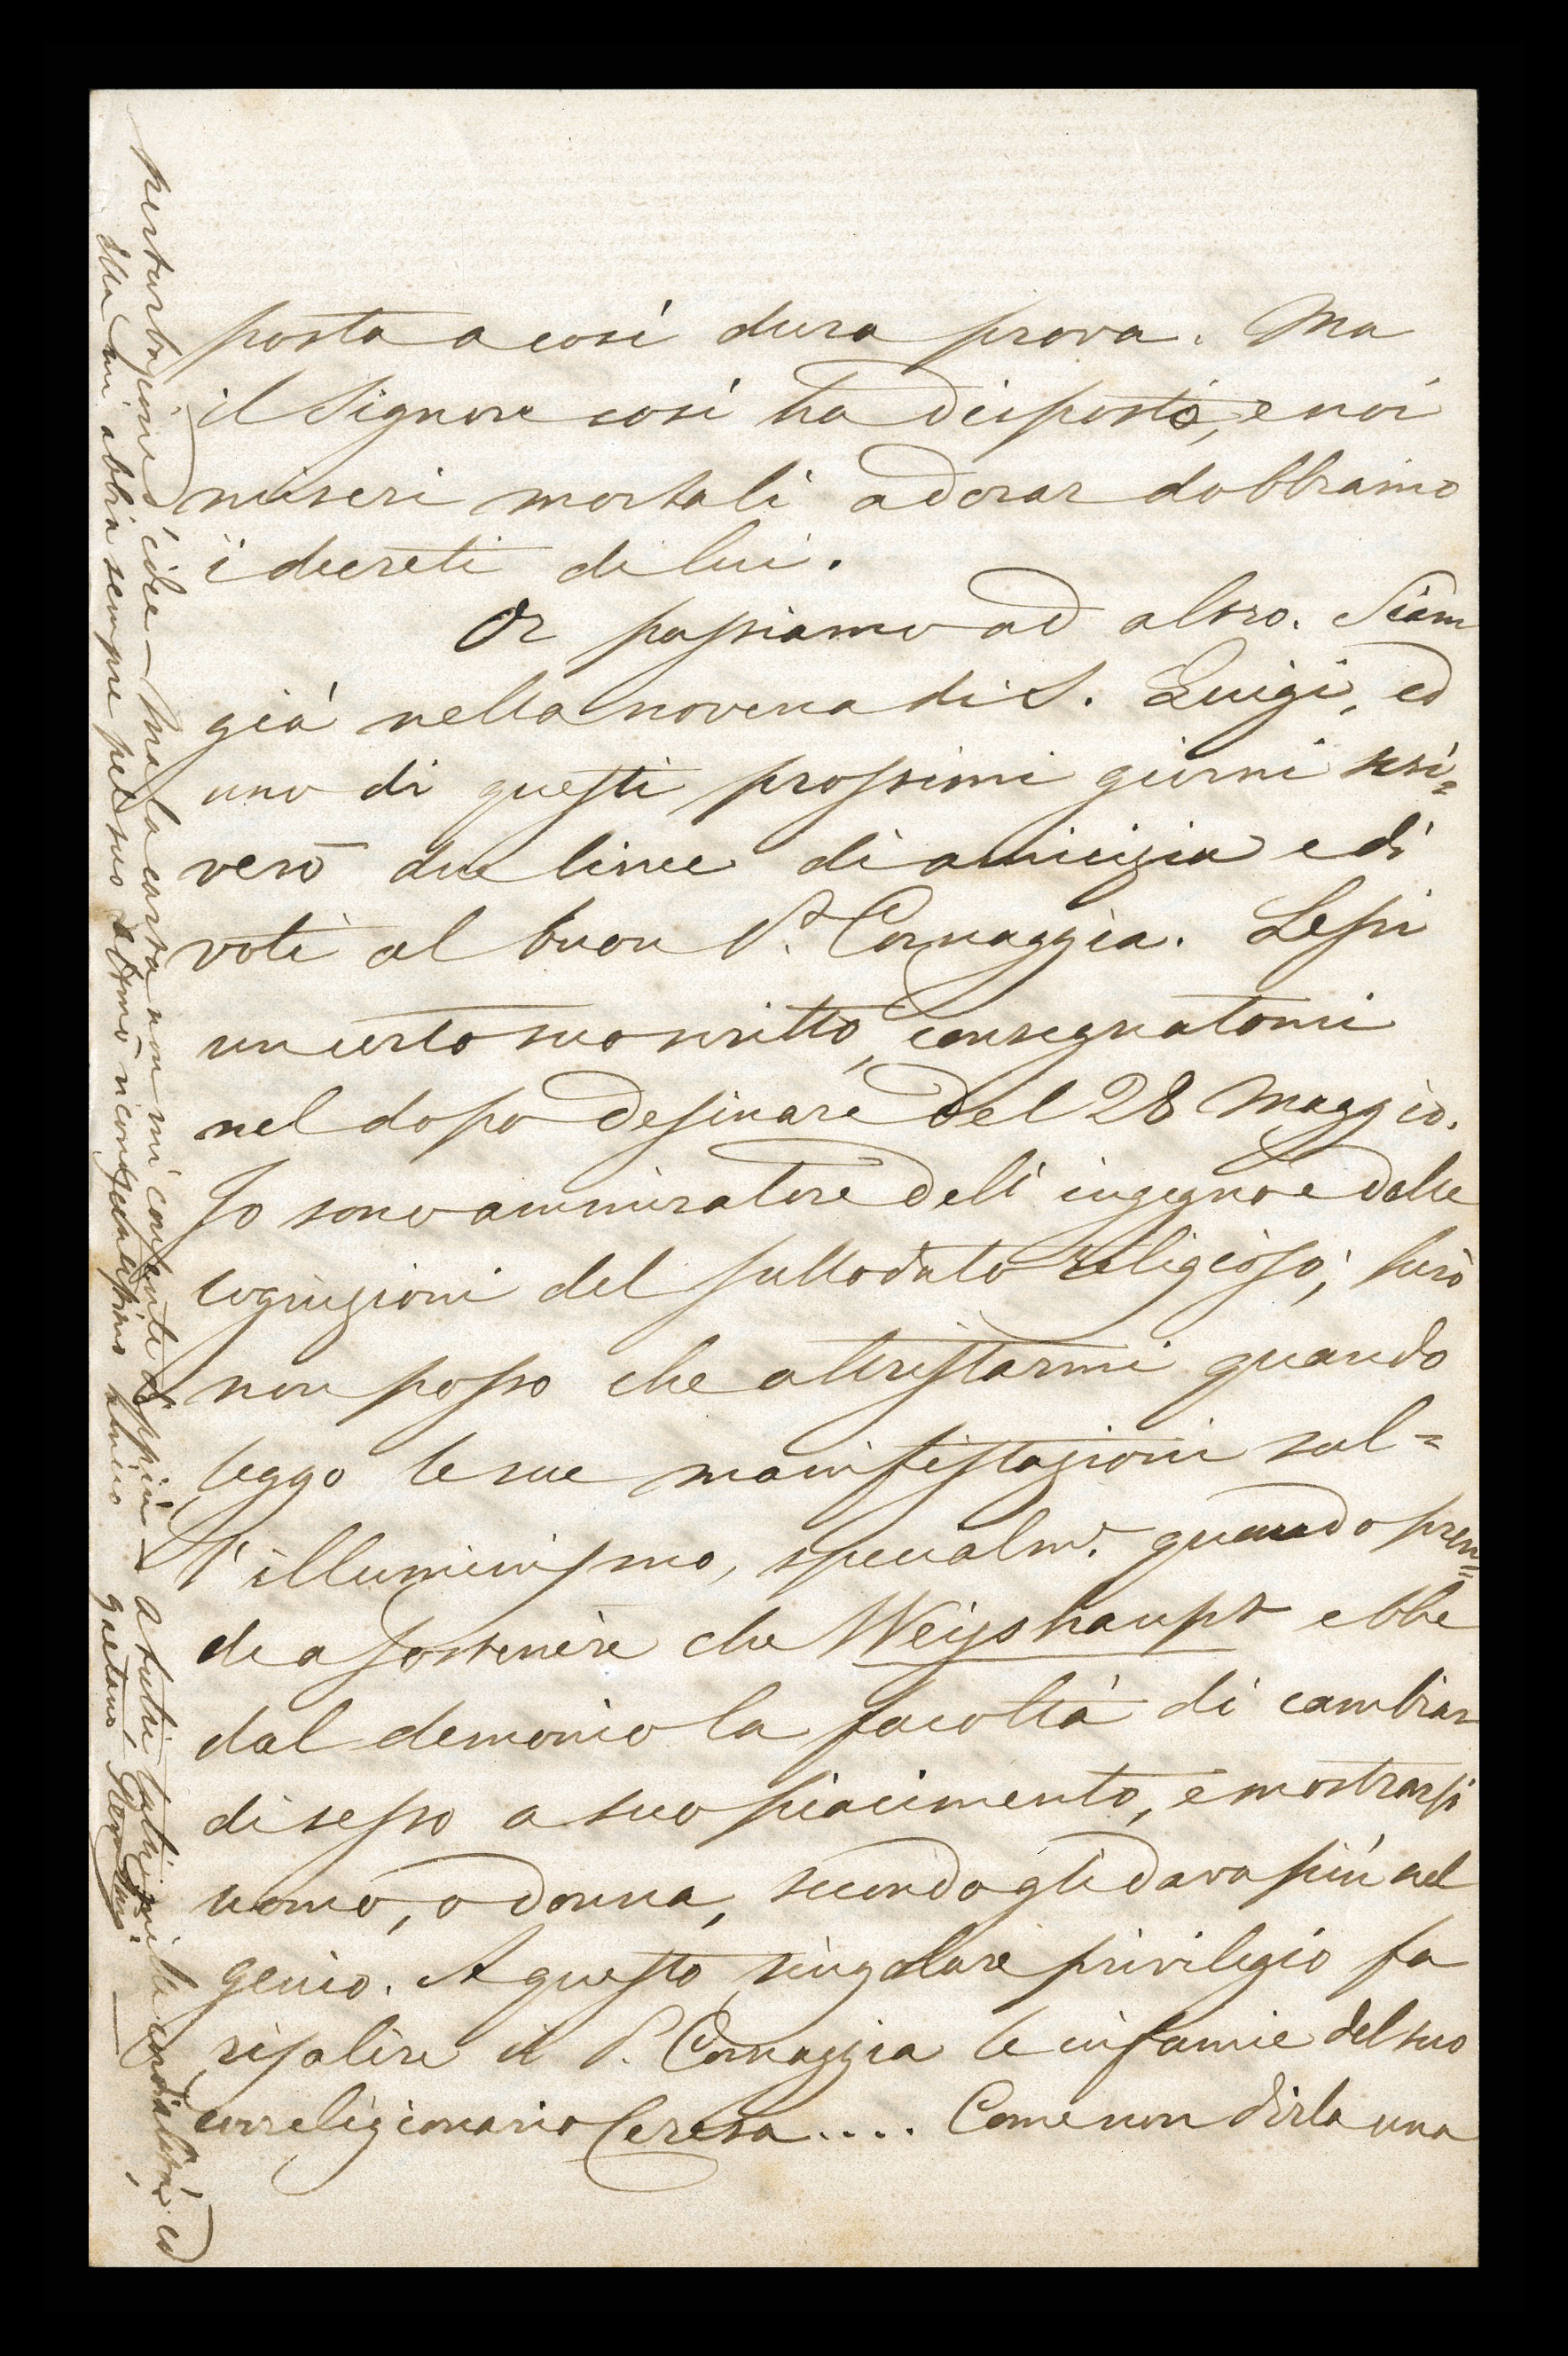 posta a così dura prova. Ma
il Signore così ha disposto, e noi
miseri mortali adorar dobbiamo
i decreti di lui.
Or passiamo ad altro. Siam
già nella novena di S. Luigi, ed
uno di questi prossimi giorni scri=
verò due linee di amicizia e di
voti al buon P. Cornaggia. Lessi
un certo suo scritto, consegnatomi
nel dopo desinare del 28 Maggio.
Io sono ammiratore dell'ingegno e delle
cognizioni del sullodato religioso; però
non posso che attristarmi quando
leggo le sue manifestazioni sul=
l'illuminismo, specialm. quando pren=
de a sostenere che Weisshaupt ebbe
dal demonio la facoltà di cambiar
di sesso a suo piacimento, e mostrarsi
uomo, o donna, secondo gli dava più nel
genio. A questo singolare privilegio fa
risalire il P. Cornaggia le infamie del suo
correligionario Ceresa.... Come non dirla una
perturbazione d'idee — Ma la carta non mi consente di più. A tutti tutti mille cordialità, ed
Ella mi abbia sempre pel suo amico
Gaetano